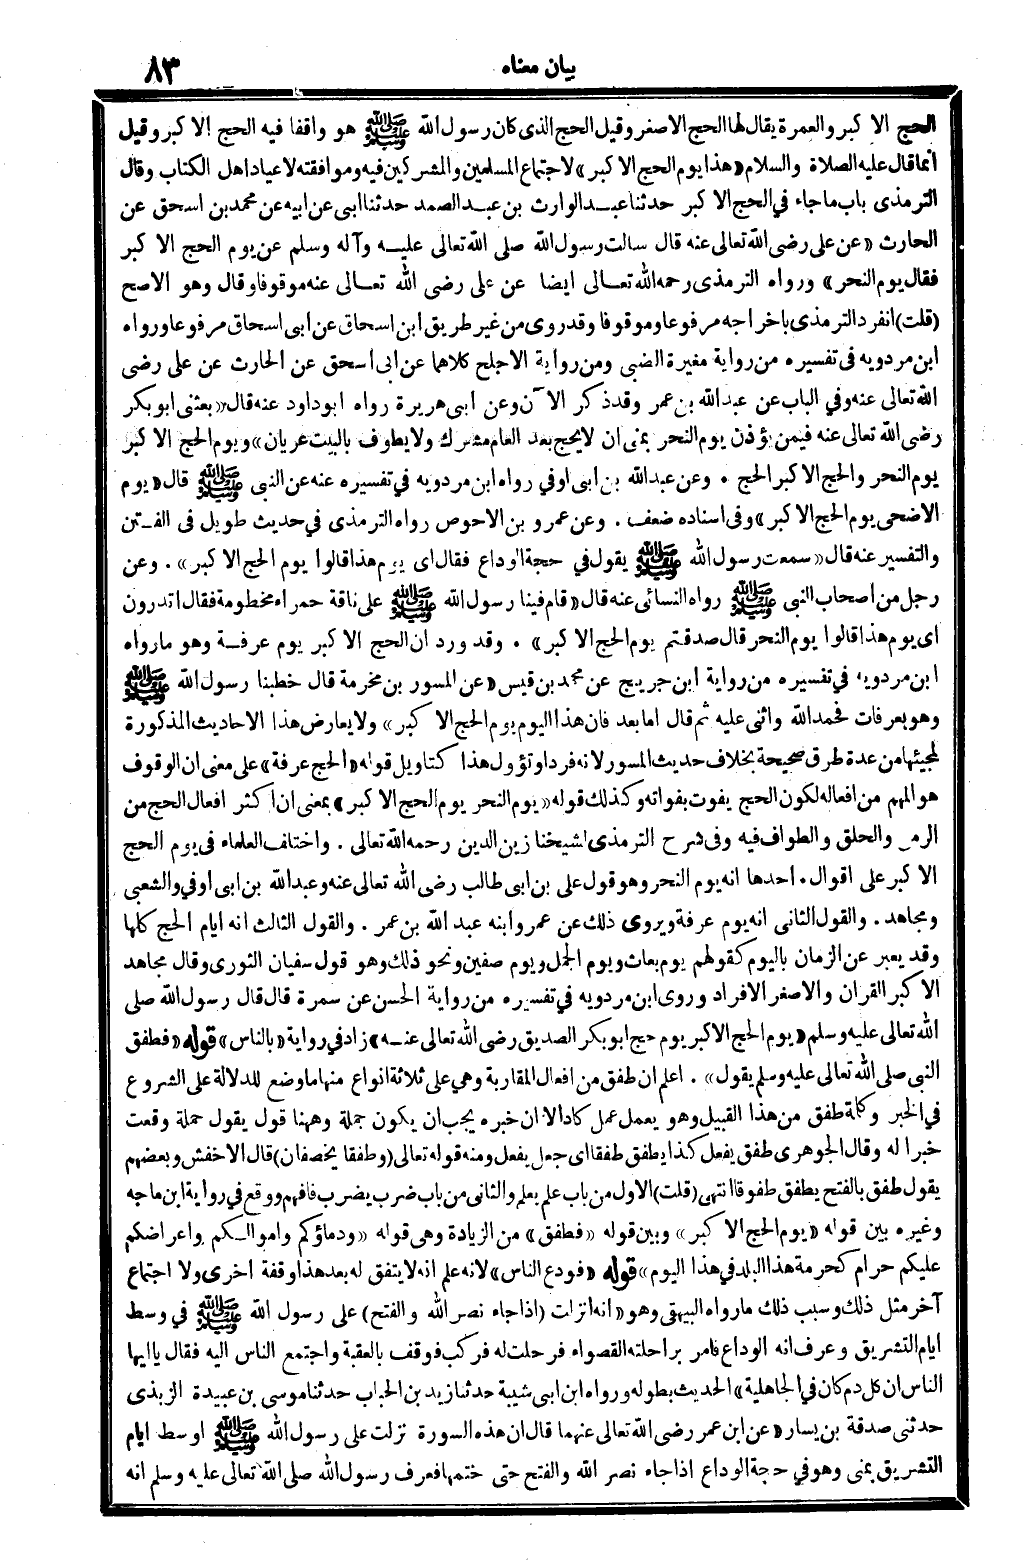 بيان معناه
٨٣
الحج الاكبر والعمرة يقال لها الحج الاصغر وقيل الحج الذى كان رسول الله ﷺ هو واقفا فيه الحج الاكبر وقيل
أنما قال عليه الصلاة والسلام «هذا يوم الحج الاكبر» لاجتماع المسلمين والمشركين فيه وموافقته لاعياد اهل الكتاب وقال
الترمذى باب ماجاء في الحج الاكبر حدثنا عبد الوارث بن عبد الصمد حدثنا ابى عن ابيه عن محمد بن اسحق عن
الحارث «عن على رضى الله تعالى عنه قال سالت رسول الله صلى الله تعالى عليه وآله وسلم عن يوم الحج الاكبر
فقال يوم النحر» ورواه الترمذى رحمه الله تعالى ايضا عن على رضى الله تعالى عنه موقوفا وقال وهو الاصح
(قلت) انفرد الترمذى باخراجه مرفوعا وموقوفا وقد روى من غير طريق ابن اسحاق عن ابى اسحاق مرفوعا ورواه
ابن مردويه فى تفسيره من رواية مغيرة الضبي ومن رواية الاجلح كلاهما عن ابى اسحق عن الحارث عن على رضى
الله تعالى عنه وفي الباب عن عبد الله بن عمر وقد ذكر الآن وعن ابى هريرة رواه ابو داود عنه قال «بعثنى ابو بكر
رضى الله تعالى عنه فيمن يؤذن يوم النحر بمنى ان لا يحج بعد العام مشرك ولا يطوف بالبيت عريان» ويوم الحج الاكبر
يوم النحر والحج الاكبر الحج . وعن عبد الله بن ابى اوفي رواه ابن مردويه في تفسيره عنه عن النبى ﷺ قال «يوم
الاضحى يوم الحج الاكبر» وفى اسناده ضعف . وعن عمرو بن الاحوص رواه الترمذى في حديث طويل فى الفتن
والتفسير عنه قال «سمعت رسول الله ﷺ يقول في حجة الوداع فقال اى يوم هذا قالوا يوم الحج الاكبر» . وعن
رجل من أصحاب النبى ﷺ رواه النسائى عنه قال «قام فينا رسول الله ﷺ على ناقة حمراء مخطومة فقال اتدرون
اى يوم هذا قالوا يوم النحر قال صدقتم يوم الحج الاكبر» . وقد ورد ان الحج الاكبر يوم عرفة وهو مارواه
ابن مردويه في تفسيره من رواية ابن جريج عن محمد بن قيس «عن المسور بن مخرمة قال خطبنا رسول الله ﷺ
وهو بعرفات فحمد الله واثنى عليه ثم قال اما بعد فان هذا اليوم يوم الحج الاكبر» ولا يعارض هذا الاحاديث المذكورة
لمجيئها من عدة طرق صحيحة بخلاف حديث المسور لانه فرد او تؤول هذا كتاويل قوله «الحج عرفة» على معنى ان الوقوف
هو المهم من افعاله لكون الحج يفوت بفواته وكذلك قوله «يوم النحر يوم الحج الاكبر» بمعنى ان اكثر افعال الحج من
الرمى والحلق والطواف فيه وفى شرح الترمذى لشيخنا زين الدين رحمه الله تعالى . واختلف العلماء فى يوم الحج
الاكبر على اقوال . احدها انه يوم النحر وهو قول على بن ابى طالب رضى الله تعالى عنه وعبد الله بن ابى اوفي والشعبى
ومجاهد . والقول الثانى انه يوم عرفة ويروى ذلك عن عمر وابنه عبد الله بن عمر . والقول الثالث انه ايام الحج كلها
وقد يعبر عن الزمان باليوم كقولهم يوم بعاث ويوم الجمل ويوم صفين ونحو ذلك وهو قول سفيان الثورى وقال مجاهد
الاكبر القران والاصغر الافراد وروى ابن مردويه في تفسيره من رواية الحسن عن سمرة قال قال رسول الله صلى
الله تعالى عليه وسلم «يوم الحج الاكبر يوم حج ابو بكر الصديق رضى الله تعالى عنه» زاد في رواية «بالناس» قوله «فطفق
النبى صلى الله تعالى عليه وسلم يقول» . اعلم ان طفق من افعال المقاربة وهي على ثلاثة انواع منها ما وضع للدلالة على الشروع
في الخبر وكلمة طفق من هذا القبيل وهو يعمل عمل كاد الا ان خبره يجب ان يكون جملة وههنا قول يقول جملة وقعت
خبرا له وقال الجوهرى طفق يفعل كذا يطفق طفقا اى جعل يفعل ومنه قوله تعالى (وطفقا يخصفان) قال الاخفش وبعضهم
يقول طفق بالفتح يطفق طفوقا انتهى (قلت) الاول من باب علم يعلم والثانى من باب ضرب يضرب فافهم ووقع في رواية ابن ماجه
وغيره بين قوله «يوم الحج الاكبر» وبين قوله «فطفق» من الزيادة وهى قوله «ودماؤكم واموالكم واعراضكم
عليكم حرام كحرمة هذا البلد في هذا اليوم» قوله «فودع الناس» لانه علم انه لا يتفق له بعد هذا وقفة اخرى ولا اجتماع
آخر مثل ذلك وسبب ذلك مارواه البيهقى وهو «انه انزلت (اذا جاء نصر الله والفتح) على رسول الله ﷺ في وسط
ايام التشريق وعرف انه الوداع فامر براحلته القصواء فرحلت له فركب فوقف بالعقبة واجتمع الناس اليه فقال يا ايها
الناس ان كل دم كان في الجاهلية» الحديث بطوله ورواه ابن ابى شيبة حدثنا زيد بن الحباب حدثنا موسى بن عبيدة الربذى
حدثنى صدقة بن يسار «عن ابن عمر رضى الله تعالى عنهما قال ان هذه السورة نزلت على رسول الله ﷺ اوسط ايام
التشريق بمنى وهو في حجة الوداع اذا جاء نصر الله والفتح حتى ختمها فعرف رسول الله صلى الله تعالى عليه وسلم انه